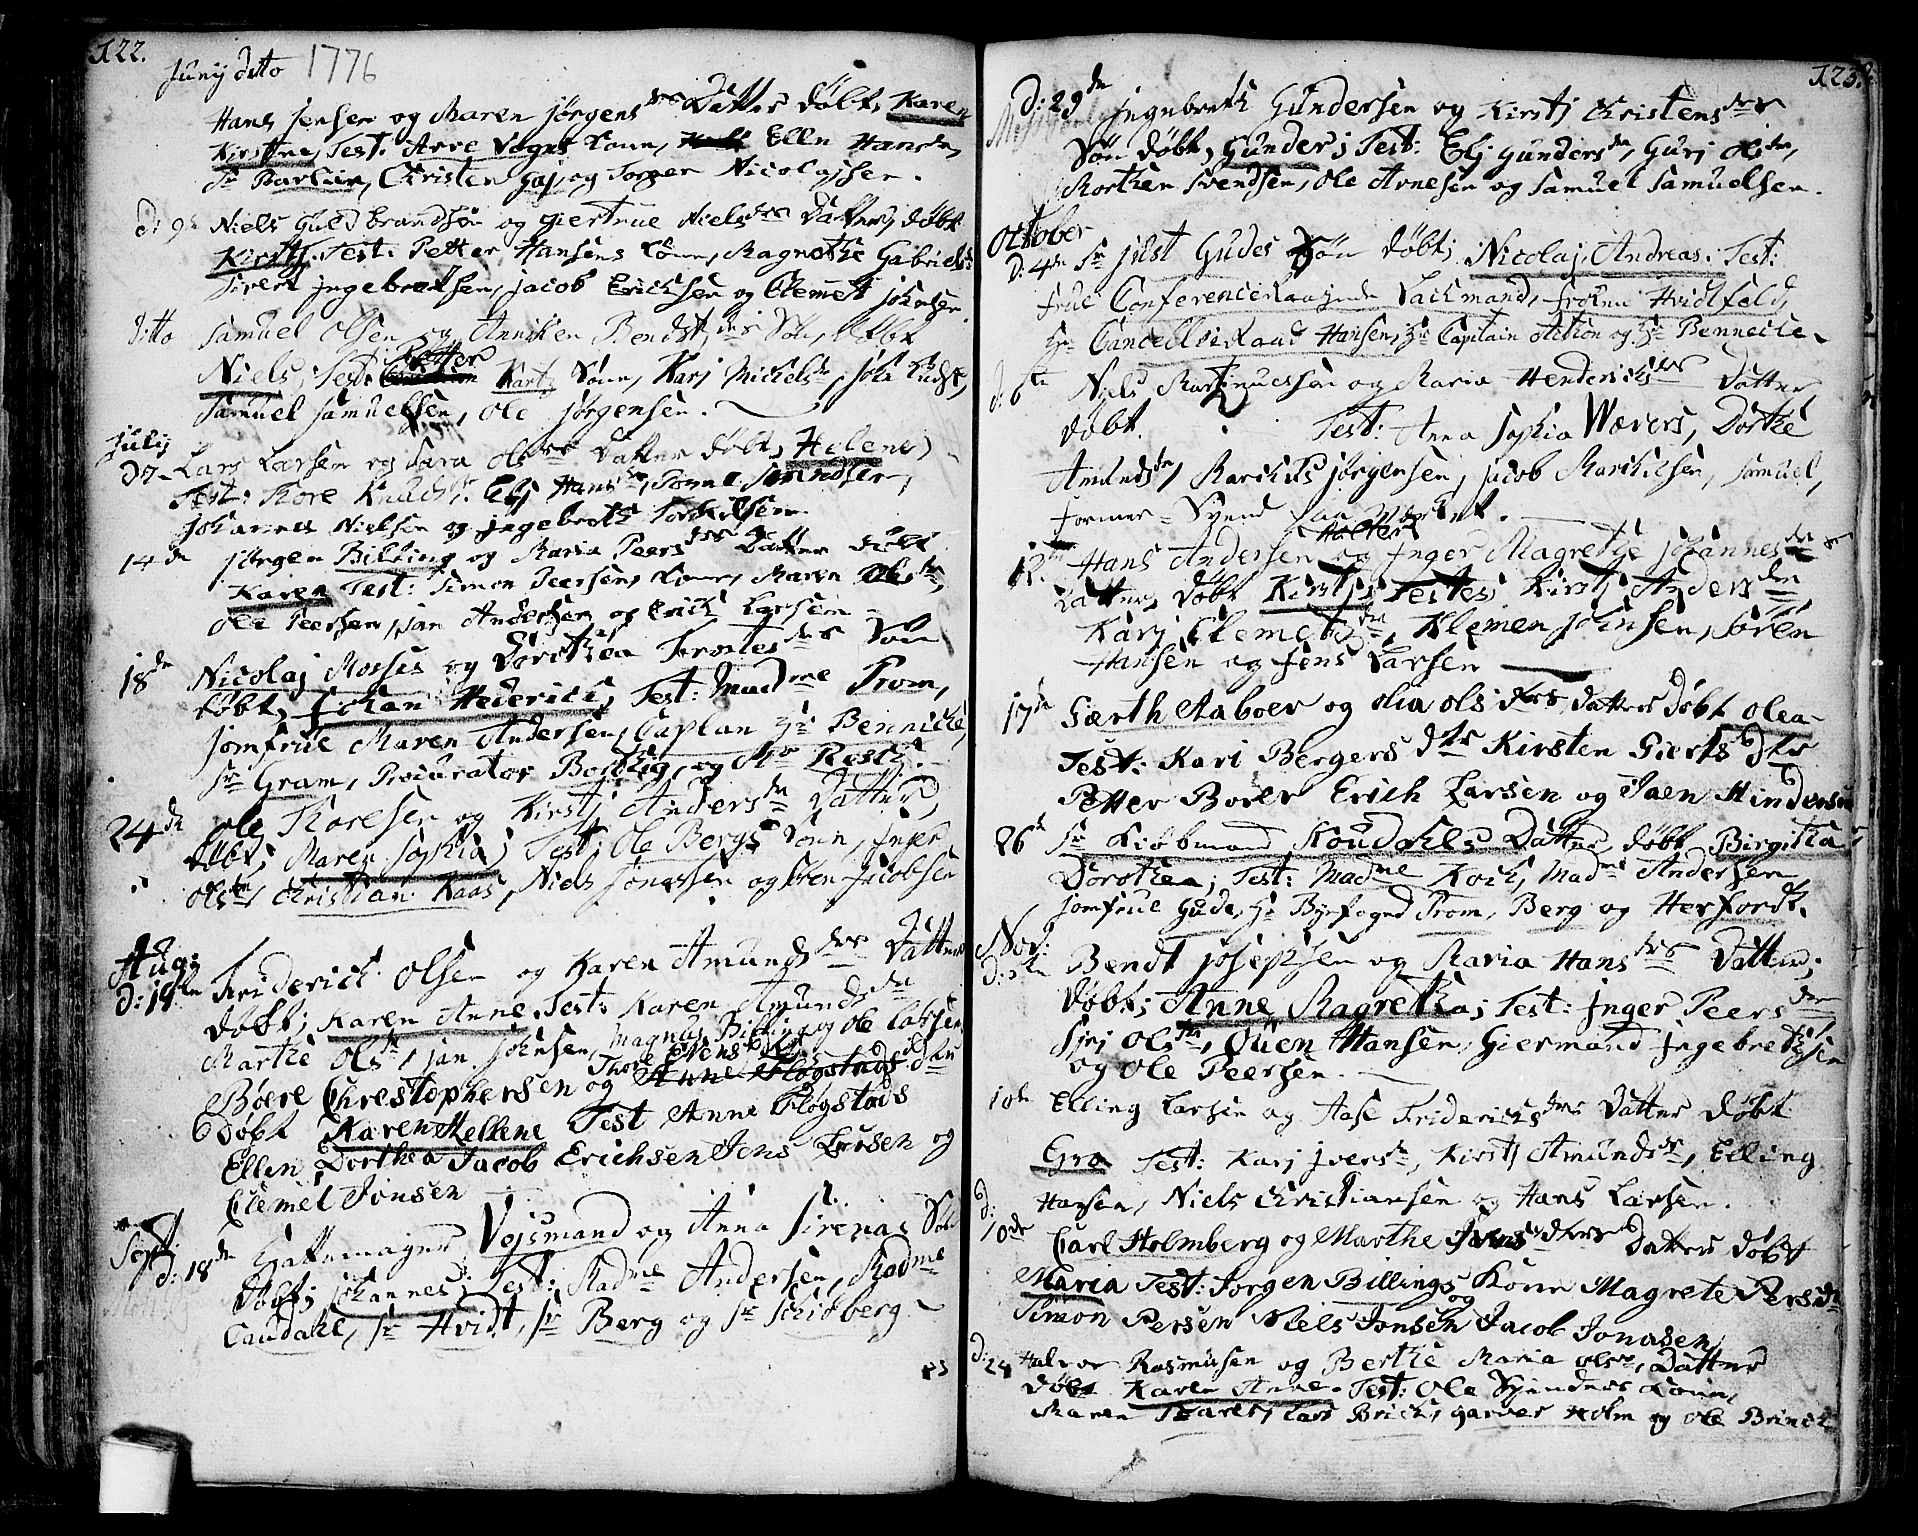 122.
Junij dito 1776
Hans Jensen og Maren Jørgens drs Datter døbt, Karen
Kirstine, Test: Arve Vogns Konn, Ellen Hansdr,
Sr Barlien, Christen Gaj, og Torger Nicolajsen.
d: 9n Niels Guldbrandsøn og Giertrue Niels drs Datter, døbt
Kirstj. Test: Petter Hansens Konn, Magrethe Gabrielsd.
Sivert Jngebretsen, Jacob Erichsen og Clemet Johnsen.
Ditto Samuel Olsen og Anniken Bendts drs Søn, døbt
Petter
Niels, Test: Kart Konn, Karj Mickelsdr,
Samuel Samuelsen, Ole Jørgensen.
Julij
D7 Lars Larsen og Sara Ols drs Datter døbt, Helene,
Test: Tore Knuds Elj Hansdr,
Johannes Nielsen og Jngebreth Torkelsen.
14de Jørgen Billing og Maria Peers drs Datter døbt
Karen Test: Simon Peersens Konn, Maren Olsdr,
Ole Peersen, Jan Andersen og Erich Larsen
18de Nicolaj Moses og Dorothea Torstes drs Søn
døbt, Johan Hederich, Test: Madme Prom,
Jomfrue Maren Andersen, Caplan Hr Bennicke,
Sr Gram, Procurator Bothig, og Mr Resch.
24de Ole Toresen og Kirstj Anders dr Datter,
døbt; Maren Sophia, Test: Ole Bergs Konn, Jnger
Olsdr, Christian Kaas, Niels Jonassen og Søren Jacobsen
Aug:
d: 14de Friderich Olsen og Karen Amunds drs Datter
døbt; Karen Anne. Test: Karen Amunds dr
Marthe Olsdr, Jan Johnsen, Magnus Billing og Ole Larsen
Thore Evens dtr
Børe Chrestophersen og Anne Fløgstads
døbt Karen Hellene Test Anne Fløgstads
Ellen Dorthea Jacob Erichsen Jens Larsen og
Clemet Jonsen
Sept:
d: 18de Gattemager Vejsmand og Anna Sirenas Søn
Døbt; Johannes; Test: Madme Andersen, Madme
Caudahl, Sr Hvidt, Sr Berg og Sr Schiøberg
123.
d: 29de Jngebreth Gundersen og Kirstj Christens drs
Søn døbt, Gunder; Test: Elj Gundersdr, Gurj Olsdr,
Morthen Svendsen, Ole Arnesen og Samuel Samuelsen.
October
D: 4de Sr Just Gudes Søn døbt; Nicolaj Andreas. Test:
Frue Conferenceraadjnde Lachmand, Frøken Hvidtfeld,
Hr Cancellieraad Hansen, Hr Captain og Hr Bennecke
d: 6te Niels Martinuessøn og Maria Hendrichs drs Datter
døbt. Test: Anna Sophia Wævers, Dorthe
Amundsdr, Marchus Jørgensen, Jacob Marchusen, Samuel,
Former-Svend paa Verket.
Holter
12. Hans Andersen og Jnger Magrethe Johannes dr
Datter, døbt Kirstj; Testes, Kirstj Anders dr
Karj Clemetsdr, Klemen Johnsen, Søren
Hansen og Jens Larsen
17de Gærth Aaboer og Olia Ols drs datter døbt Olea
Test: Kari Bergers dtr Kirsten Gierts Dtr
Petter Borer Erich Larsen og Jaen Hindersen
26de Sr Kiøbmand Houdahls Datter døbt Birgitha
Dorothea; Test: Madme Koch, Madme Andersen,
Jomfrue Gude, Hr Byefogned Prom, Berg og Herfordt.
Nov:
Bendt Josephsen og Maria Hans drs Datter;
døbt; Anne Magretha; Test: Jnger Peers dr
Sirj Olsdr, Ouen Hansen, Giermand Jngebrethsen
og Ole Peersen.
10de Elling Larsen og Aase Friderichs drs Datter døbt
Gro Test: Karj Jversdr, Kirstj Amundsdr, Elling
Hansen, Niels Christiansen og Hans Larsen.
d:
10de Carl Holmberg og Marthe Jens dtrs Datter døbt
Maria Test: Jorgen Billings Kone Magrete Persdtr
Simon Persen Niels Jonsen og Jacob Jonasen
D: 24 Halvor Rasmusen og Berthe Maria Olsdr, Datter
døbt Karen Anne. Test: Ole Svendsens Konn,
Maren Lars Brich, garver Holm og Ole Brinch